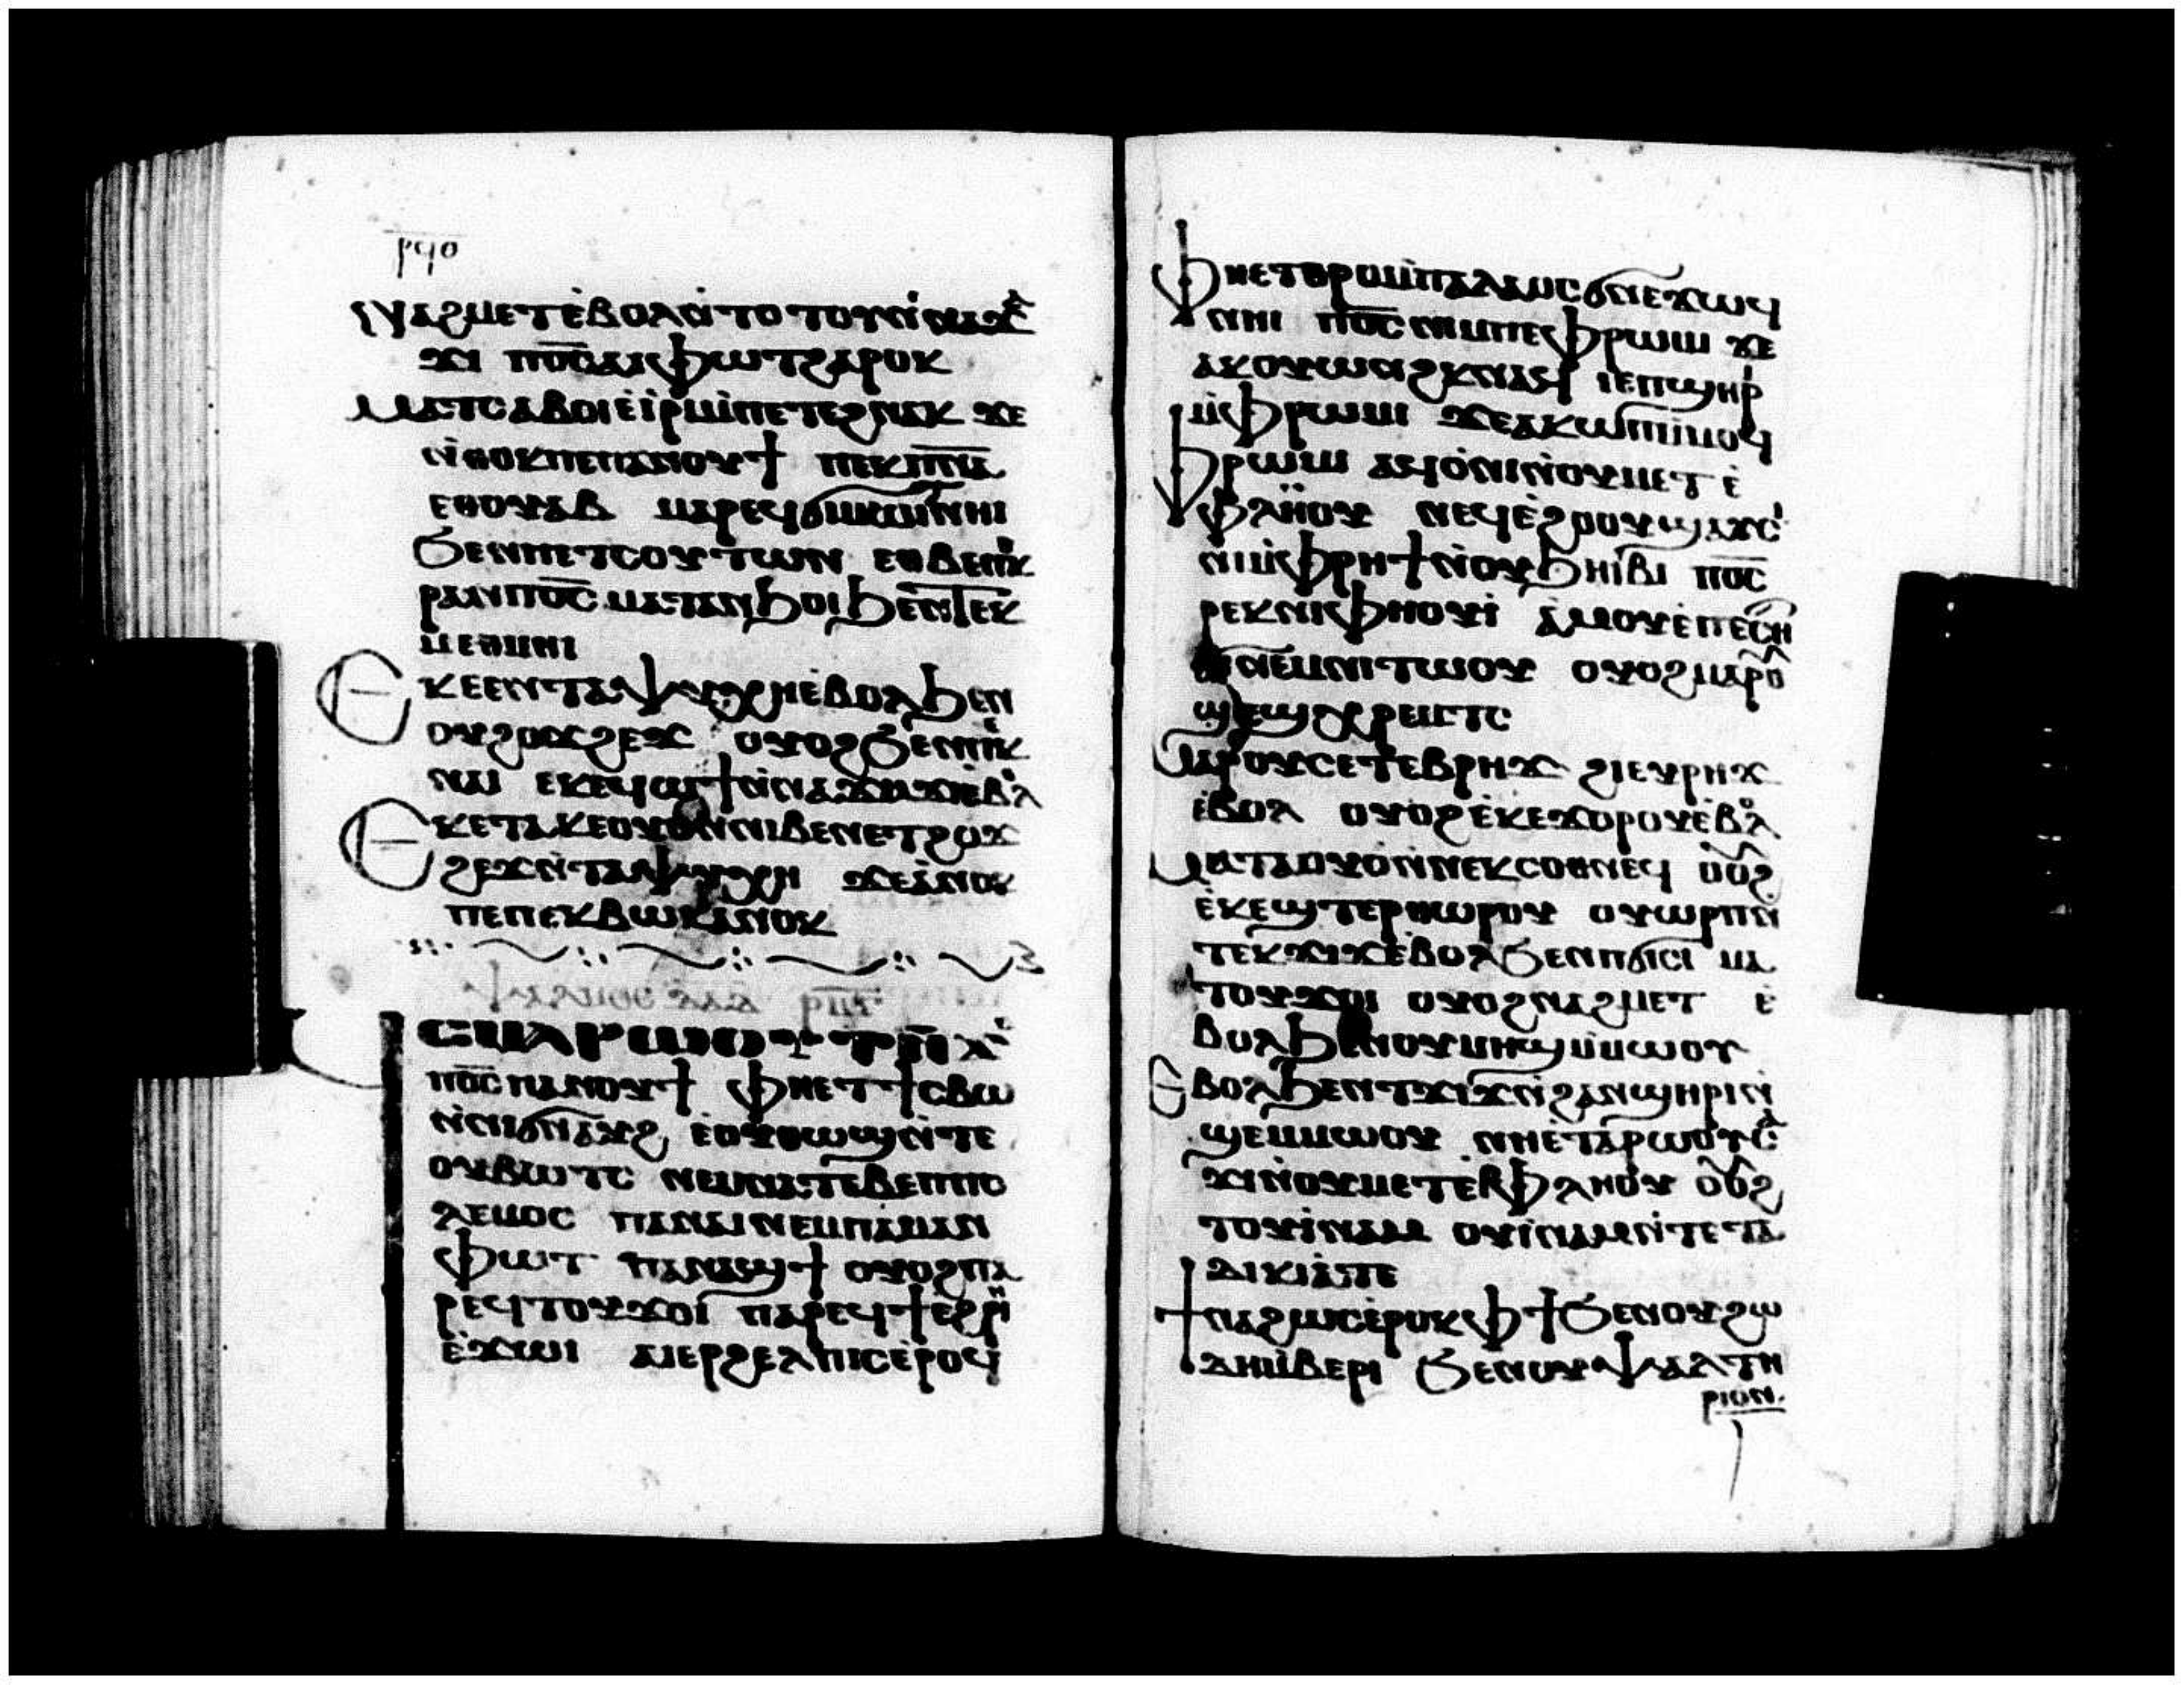 ⲣϥⲑ
ⲛⲁϩⲙⲉⲧ ⲉ̀ⲃⲟⲗ ϧⲁ ⲧⲟⲧⲟⲩ ⲛ̀ⲛⲁϫⲁϫⲉ
ϫⲓ ⲡⲟ̅ⲥ̅ ⲁⲓⲫⲱⲧ ϩⲁⲣⲟⲕ
ⲙⲁⲧⲥⲁⲃⲟⲓ ⲉ̀ⲓⲣⲓ ⲙ̀ⲡⲉⲧⲉϩⲛⲁⲕ ϫⲉ
ⲛ̀ⲑⲟⲕ ⲡⲉ ⲡⲁⲛⲟⲩϯ ⲡⲉⲕⲡ̅ⲛ̅ⲁ̅
ⲉⲑⲟⲩⲁⲃ ⲙⲁⲣⲉϥϭⲓⲙⲱⲓⲧ ⲛⲏⲓ
ϧⲉⲛ ⲡⲉⲧⲥⲟⲩⲧⲱⲛ ⲉⲑⲃⲉ ⲡⲉⲕ
ⲣⲁⲛ ⲡⲟ̅ⲥ̅ ⲙⲁⲧⲁⲛϧⲟⲓ ϧⲉⲛ ⲧⲉⲕ
ⲙⲉⲑⲙⲏⲓ
ⲉⲕⲉⲉⲛ ⲧⲁⲯⲩⲭⲏ ⲉ̀ⲃⲟⲗ ϧⲉⲛ
ⲟⲩϩⲟϫϩⲉϫ ⲟⲩⲟϩ ϧⲉⲛ ⲡⲉⲕ
ⲛⲁⲓ ⲉⲕⲉϥⲱϯ ⲛ̀ⲛⲁϫⲁϫⲓ ⲉ̀ⲃⲟⲗ
ⲉⲕⲉⲧⲁⲕⲉ ⲟⲩⲟⲛ ⲛⲓⲃⲉⲛ ⲉⲧϩⲟϫ
ϩⲉϫ ⲛ̀ⲧⲁⲯⲩⲭⲏ ϫⲉ ⲁⲛⲟⲕ
ⲡⲉ ⲡⲉⲕⲃⲱⲕ ⲁⲛⲟⲕ
ϥⲥⲙⲁⲣⲱⲟⲩⲧ ⲛ̀ϫⲉ
ⲡⲟ̅ⲥ̅ ⲡⲁⲛⲟⲩϯ ⲫⲏⲉⲧϯⲥⲃⲱ
ⲛ̀ⲛⲁϭⲛⲁⲩϩ ⲉ̀ⲟⲩⲑⲱϣ ⲛ̀ⲧⲉ
ⲟⲩⲃⲱⲧⲥ ⲛⲉⲙ ⲛⲁⲧⲏⲃ ⲉ̀ⲡⲡⲟ
ⲗⲉⲙⲟⲥ ⲡⲁⲛⲁⲓ ⲛⲉⲙ ⲡⲁⲙⲁⲛ
ⲫⲱⲧ ⲡⲁⲛⲁϣϯ ⲟⲩⲟϩ ⲡⲁ
ⲣⲉϥⲧⲟⲩϫⲟⲓ ⲡⲁⲣⲉϥϯ ⲉϩⲣⲏⲓ
ⲉ̀ϫⲱⲓ ⲁⲓⲉⲣϩⲉⲗⲡⲓⲥ ⲉ̀ⲣⲟϥ
ⲫⲏⲉⲧⲑⲣⲟ ⲙ̀ⲡⲁⲗⲁⲟⲥ ϭⲛⲉϫⲱϥ
ⲛⲏⲓ ⲡⲟ̅ⲥ̅ ⲛⲓⲙ ⲡⲉ ⲫⲣⲱⲙⲓ ϫⲉ
ⲁⲕⲟⲩⲱⲛϩⲕ ⲛⲁϥ ⲓⲉ ⲡϣⲏⲣⲓ
ⲙ̀ⲫⲣⲱⲙⲓ ϫⲉ ⲁⲕⲱⲡ ⲙ̀ⲙⲟϥ
ⲫⲣⲱⲙⲓ ⲁϥⲟ̀ⲛⲓ ⲛ̀ⲟⲩⲙⲉⲧⲉ̀
ⲫⲗⲏⲟⲩ ⲛⲉϥⲉ̀ϩⲟⲟⲩ ϣⲁⲩⲥⲓ
ⲛⲓ ⲙ̀ⲫⲣⲏϯ ⲛ̀ⲟⲩϧⲏⲓⲃⲓ ⲡⲟ̅ⲥ̅
ⲣⲉⲕ ⲛⲓⲫⲏⲟⲩⲓ̀ ⲁⲙⲟⲩ ⲉ̀ⲡⲉⲥⲏⲧ
ϭⲓⲛⲉⲙ ⲛⲓⲧⲱⲟⲩ ⲟⲩⲟϩ ⲙⲁⲣⲟⲩ
ϣⲉϣ ⲭⲣⲉⲙⲧⲥ
ⲙⲁⲣⲟⲩⲥⲉⲧⲉⲃⲣⲏϫ ϩⲓ ⲉⲩⲣⲏϫ
ⲉ̀ⲃⲟⲗ ⲟⲩⲟϩ ⲉ̀ⲕⲉϫⲟⲣⲟⲩ ⲉ̀ⲃⲟⲗ
ⲙⲁⲧⲁⲟⲩⲟ̀ ⲛ̀ⲛⲉⲕⲥⲟⲑⲛⲉϥ ⲟⲩⲟϩ
ⲉ̀ⲕⲉϣⲧⲉⲣⲑⲱⲣⲟⲩ ⲟⲩⲱⲣⲡ ⲛ̀
ⲧⲉⲕϫⲓϫ ⲉ̀ⲃⲟⲗ ϧⲉⲛ ⲡϭⲓⲥⲓ ⲙⲁ
ⲧⲟⲩϫⲟⲓ ⲟⲩⲟϩ ⲛⲁϩⲙⲉⲧ ⲉ̀
ⲃⲟⲗ ϧⲉⲛ ⲟⲩⲙⲏϣ ⲙ̀ⲙⲱⲟⲩ
ⲉⲃⲟⲗ ϧⲉⲛ ⲧϫⲓϫ ⲛ̀ϩⲁⲛϣⲏⲣⲓ ⲛ̀
ϣⲉⲙⲙⲱⲟⲩ ⲛⲏⲉ̀ⲧⲁ ⲣⲱⲟⲩ ⲥⲁ
ϫⲓ ⲛ̀ⲟⲩⲙⲉⲧⲉ̀ⲫⲗⲏⲟⲩ ⲟⲩⲟϩ
ⲧⲟⲩⲓ̀ⲛⲁⲙ ⲟⲩⲓ̀ⲛⲁⲙ ⲛ̀ⲧⲉ ⲧⲁ
ⲇⲓⲕⲓⲁ̀ ⲧⲉ
ϯⲛⲁϩⲱⲥ ⲉ̀ⲣⲟⲕ ⲫϯ ϧⲉⲛ ⲟⲩϩⲱ
ⲇⲏ ⲙ̀ⲃⲉⲣⲓ ϧⲉⲛ ⲟⲩⲯⲁⲗⲧⲏ
ⲣⲓⲟⲛ.